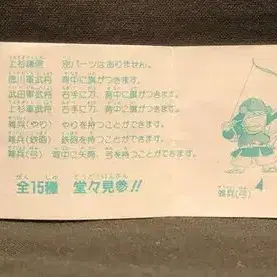 上杉謙信 別パーツはありません。
徳川軍武将 背中に旗がつきます。
武田軍武将 右手に刀、背中に旗がつきます。
上杉軍武将 右手に刀、背中に旗がつきます。
雑兵(やり) やりを持つことができます。
雑兵(鉄砲) 鉄砲を持つことができます。
雑兵(弓) 背中に矢筒、弓を持つことができます。
全15種 堂々見参!!
雑兵(弓)